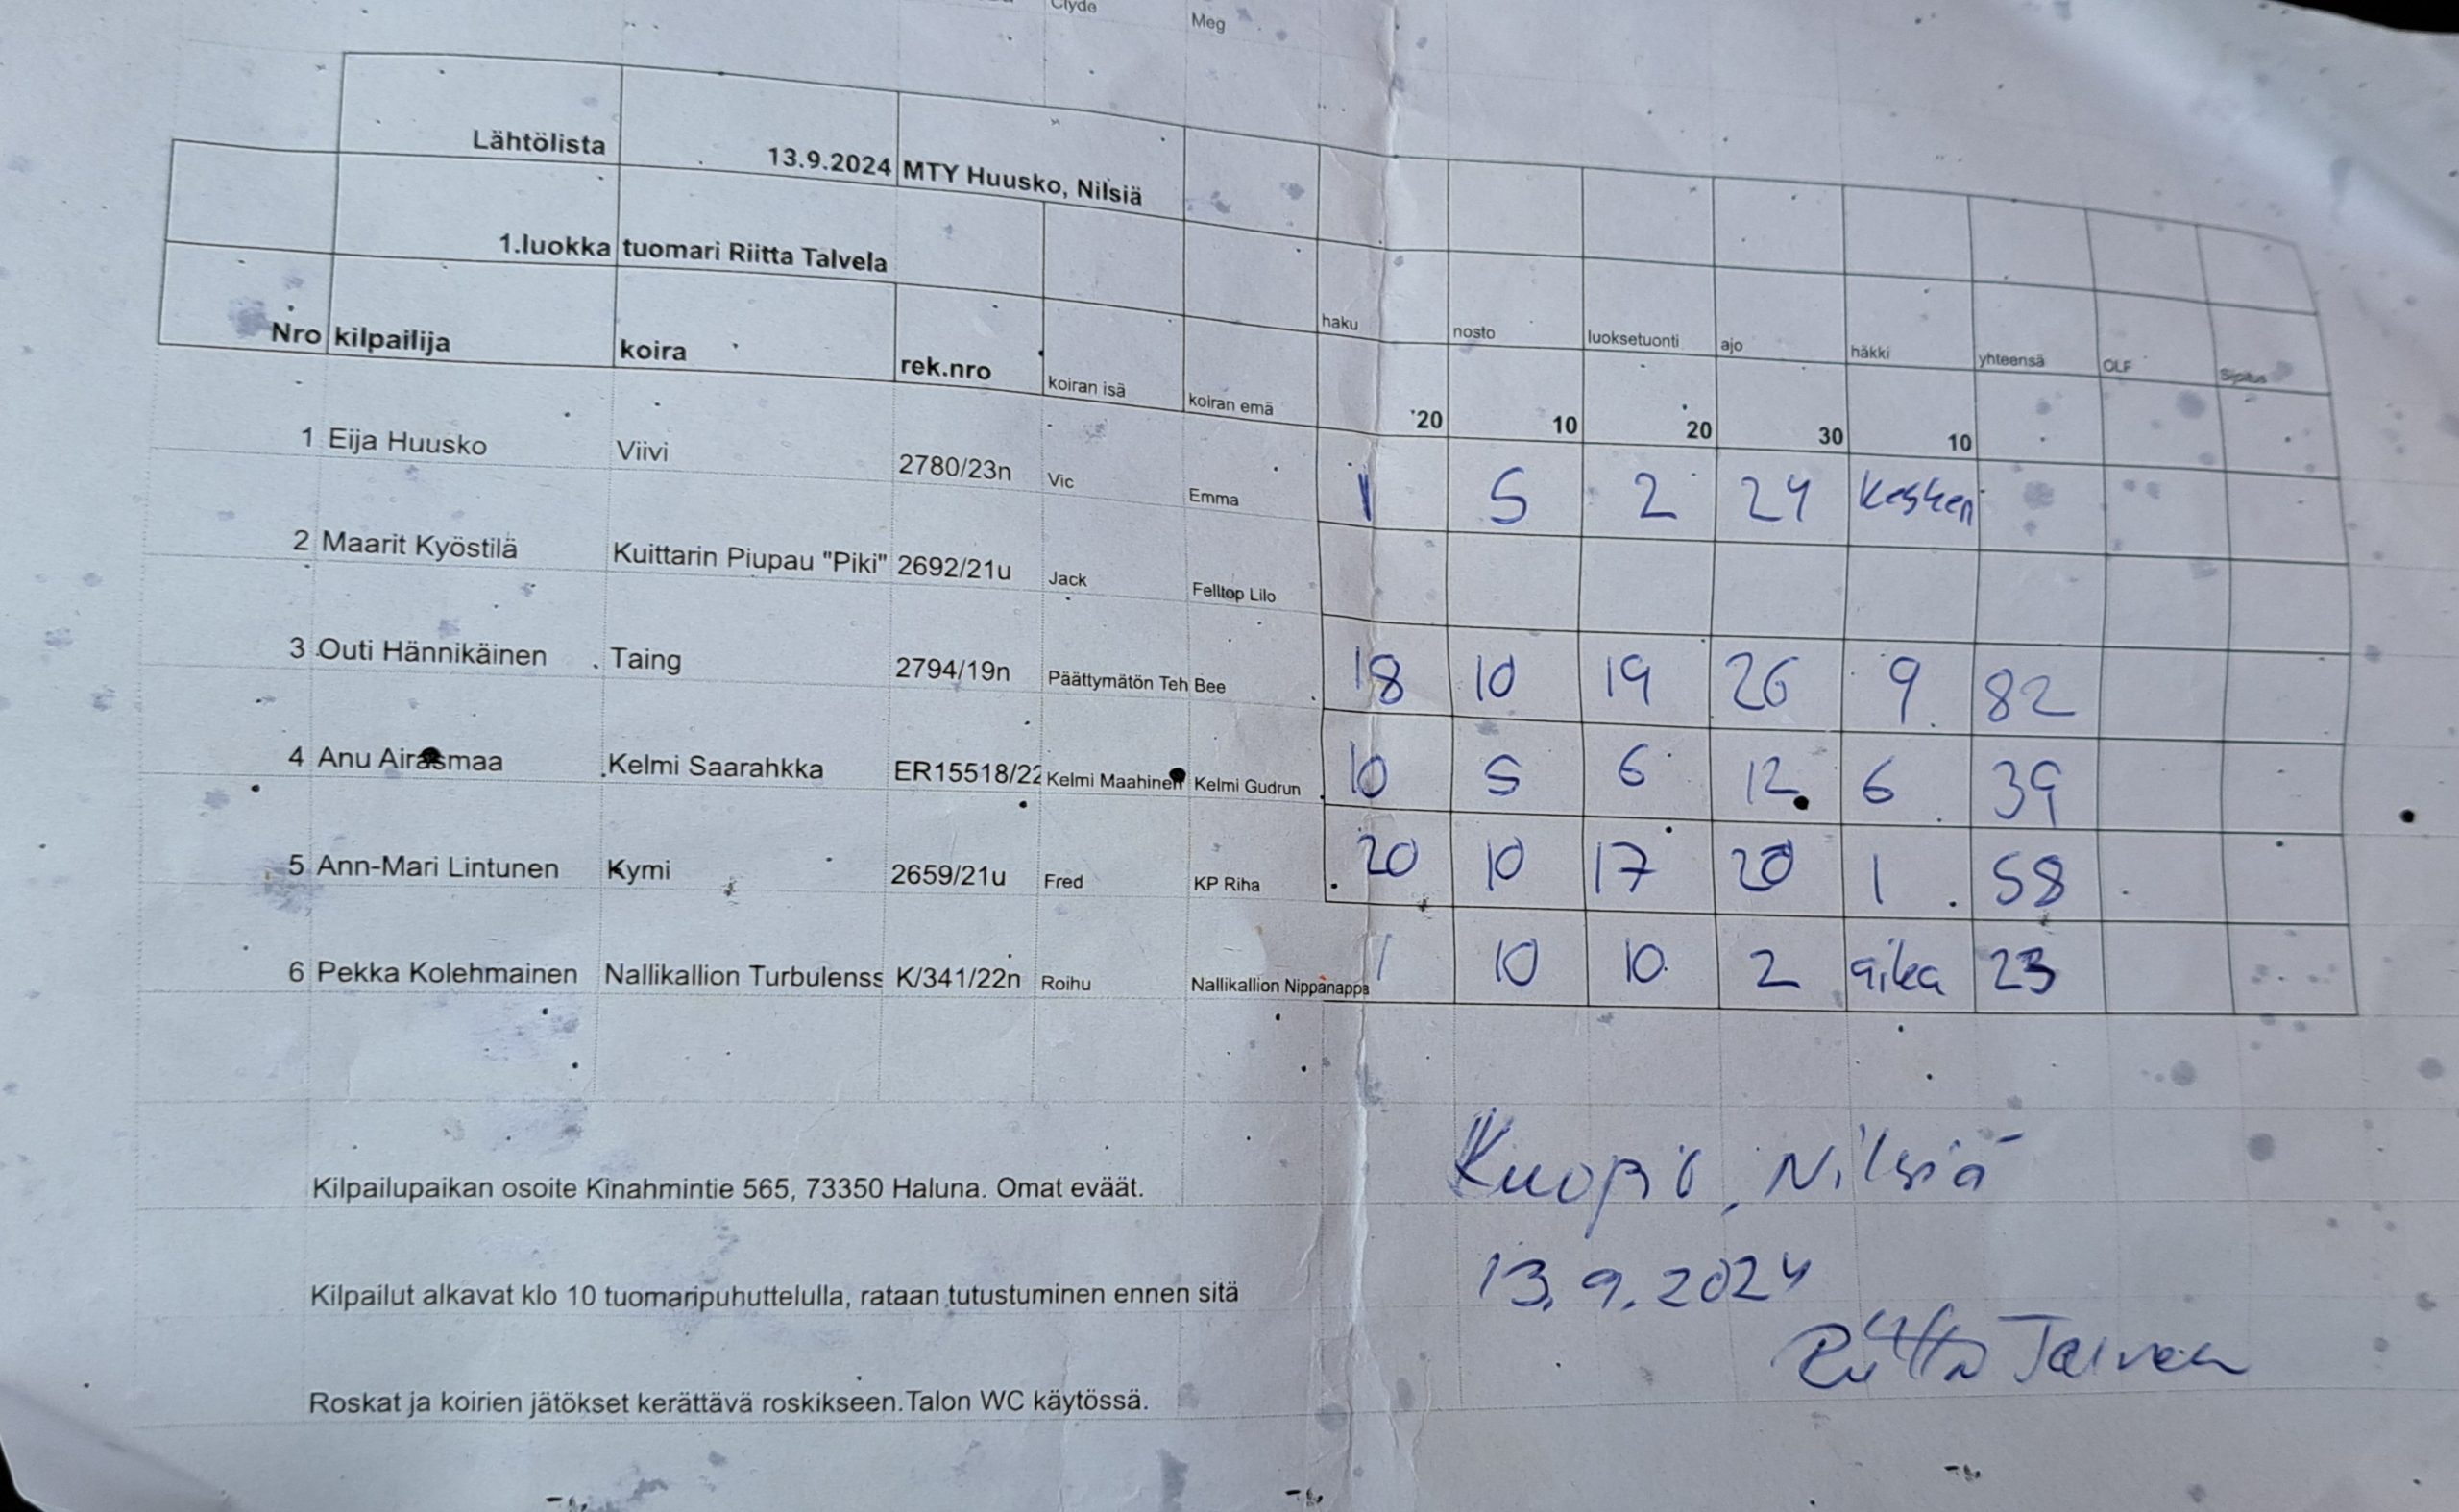 Clyde Meg
Lähtölista 13.9.2024 MTY Huusko, Nilsiä
1.luokka tuomari Riitta Talvela
Nro kilpailija koira rek.nro koiran isä koiran emä haku nosto luoksetuonti ajo häkki yhteensä OLF Sijoitus
20 10 20 30 10
1 Eija Huusko Viivi 2780/23n Vic Emma 1 5 2 24 kesken
2 Maarit Kyöstilä Kuittarin Piupau "Piki" 2692/21u Jack Felltop Lilo
3 Outi Hännikäinen Taing 2794/19n Päättymätön Teh Bee 18 10 19 26 9 82
4 Anu Airasmaa Kelmi Saarahkka ER15518/22 Kelmi Maahinen Kelmi Gudrun 10 5 6 12 6 39
5 Ann-Mari Lintunen Kymi 2659/21u Fred KP Riha 20 10 17 20 1 58
6 Pekka Kolehmainen Nallikallion Turbulenss K/341/22n Roihu Nallikallion Nippanappa 1 10 10 2 aika 23
Kilpailupaikan osoite Kinahmintie 565, 73350 Haluna. Omat eväät.
Kuopio, Nilsiä
Kilpailut alkavat klo 10 tuomaripuhuttelulla, rataan tutustuminen ennen sitä
13.9.2024
Riitta Talvela
Roskat ja koirien jätökset kerättävä roskikseen.Talon WC käytössä.